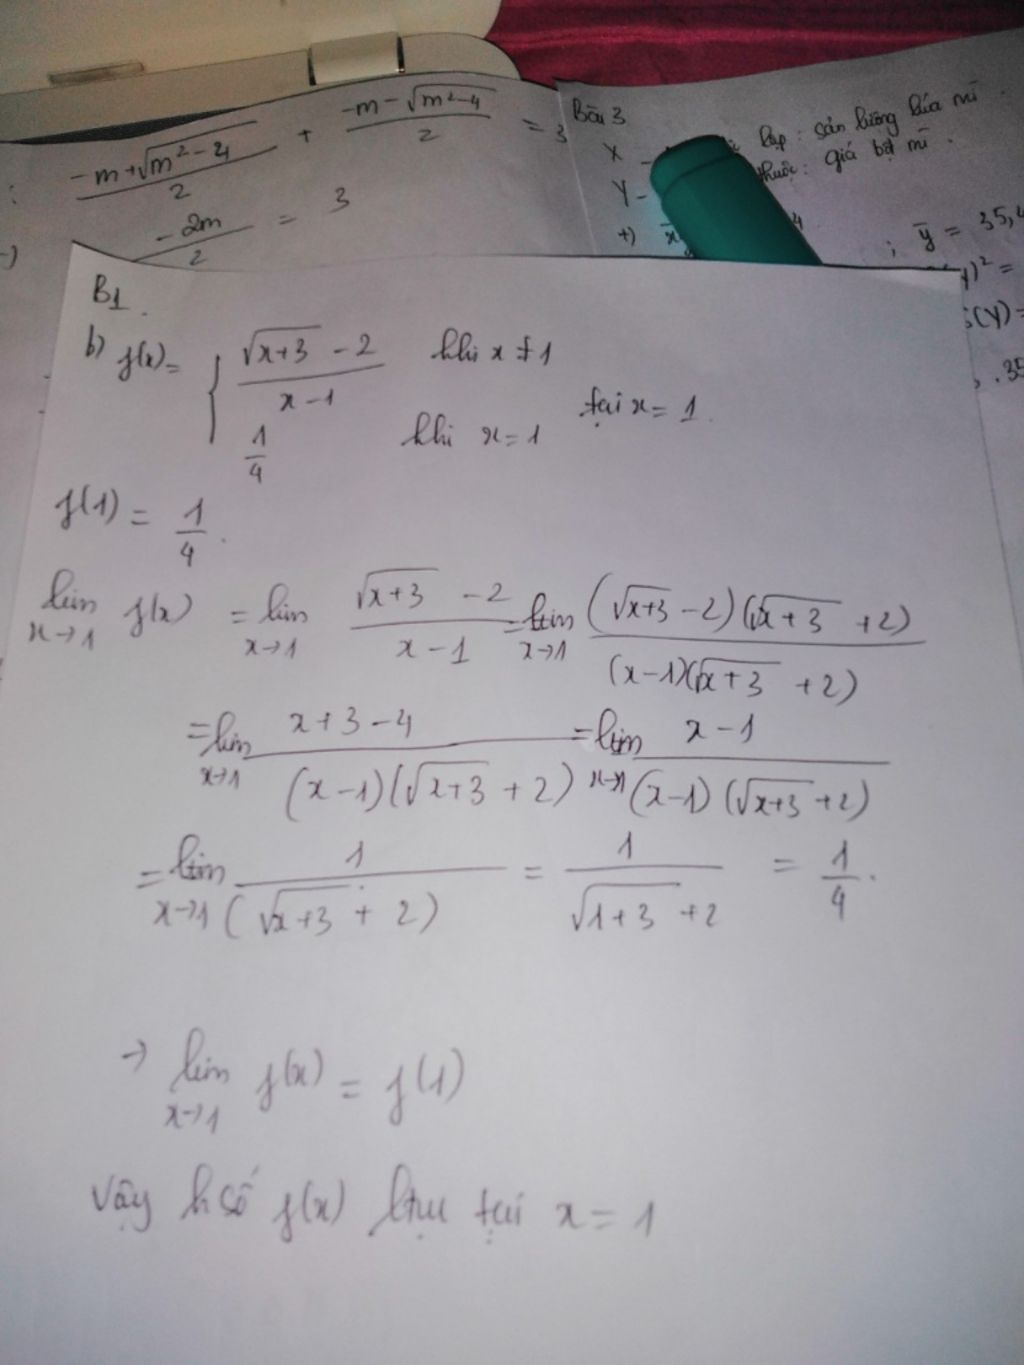 -m+√(m²-4)/2 + -m-√(m²-4)/2 = 3
-2m/2 = 3
Bài 3
X - lập: sản lượng lúa mì.
Y - thuộc: giá bột mì.
+) x̄ 4 ; ȳ = 35,4
(y)² =
S(Y) =
.35
B1.
b) f(x) = { (√(x+3) - 2)/(x-1) khi x ≠ 1
tại x = 1.
1/4 khi x = 1
f(1) = 1/4.
lim x→1 f(x) = lim x→1 (√(x+3) - 2)/(x-1) = lim x→1 (√(x+3) - 2)(√(x+3) + 2)/((x-1)(√(x+3) + 2))
= lim x→1 (x+3-4)/((x-1)(√(x+3) + 2)) = lim x→1 (x-1)/((x-1)(√(x+3) + 2))
= lim x→1 1/(√(x+3) + 2) = 1/(√(1+3) + 2) = 1/4.
→ lim x→1 f(x) = f(1)
Vậy h số f(x) ltục tại x = 1